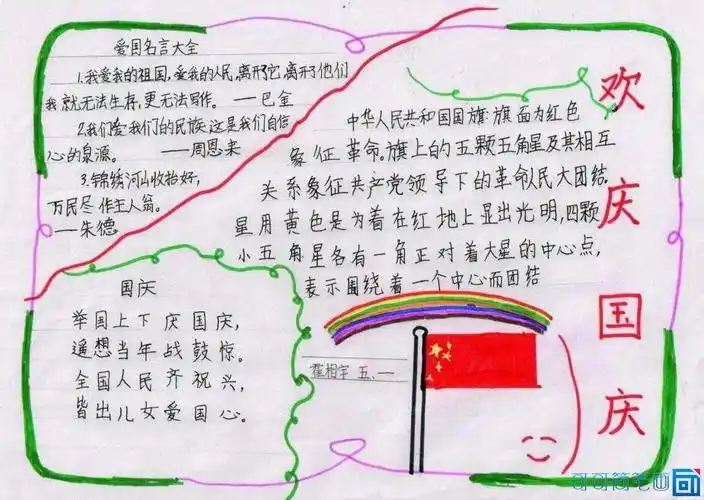 爱国名言大全
1.我爱我的祖国,爱我的人民,离开了它,离开了他们
我就无法生存,更无法写作。 ——巴金
2.我们爱我们的民族,这是我们自信
心的泉源。 ——周恩来
3.锦绣河山收拾好,
万民尽作主人翁。
——朱德
中华人民共和国国旗旗面为红色
象征革命。旗上的五颗五角星及其相互
关系象征共产党领导下的革命人民大团结
星用黄色是为着在红地上显出光明,四颗
小五角星各有一角正对着大星的中心点,
表示围绕着一个中心而团结
国庆
举国上下庆国庆,
遥想当年战鼓惊。
全国人民齐祝兴,
皆出儿女爱国心。
霍相宇 五、一
欢
庆
国
庆
可可简笔画